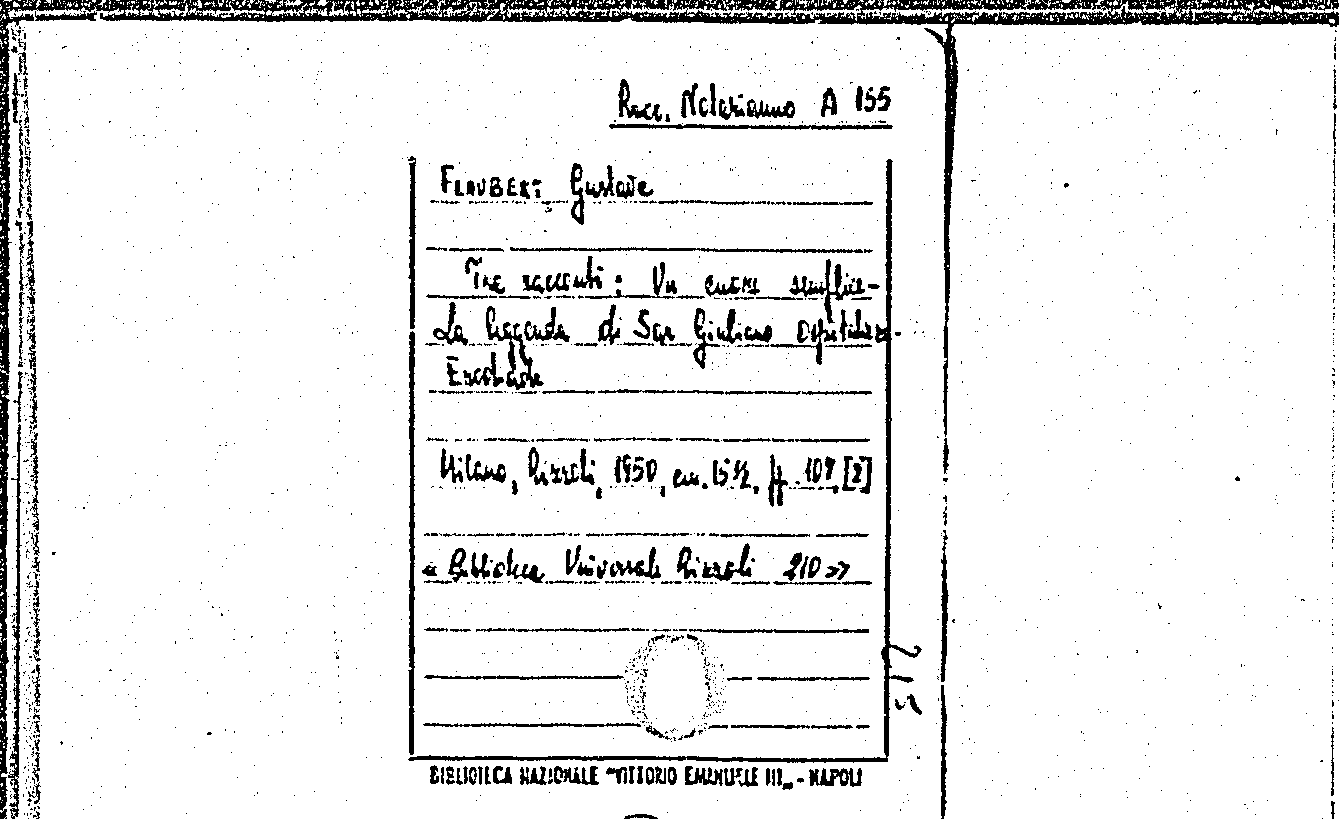 Racc. Notarianno A 155
FLAUBERT Gustave
Tre racconti: Un cuore semplice -
La leggenda di San Giuliano ospitaliere -
Erodiade
Milano, Rizzoli, 1950, cm. 15½, pp. 107, [2]
« Biblioteca Universale Rizzoli 210 »
BIBLIOTECA NAZIONALE "VITTORIO EMANUELE III„ - NAPOLI